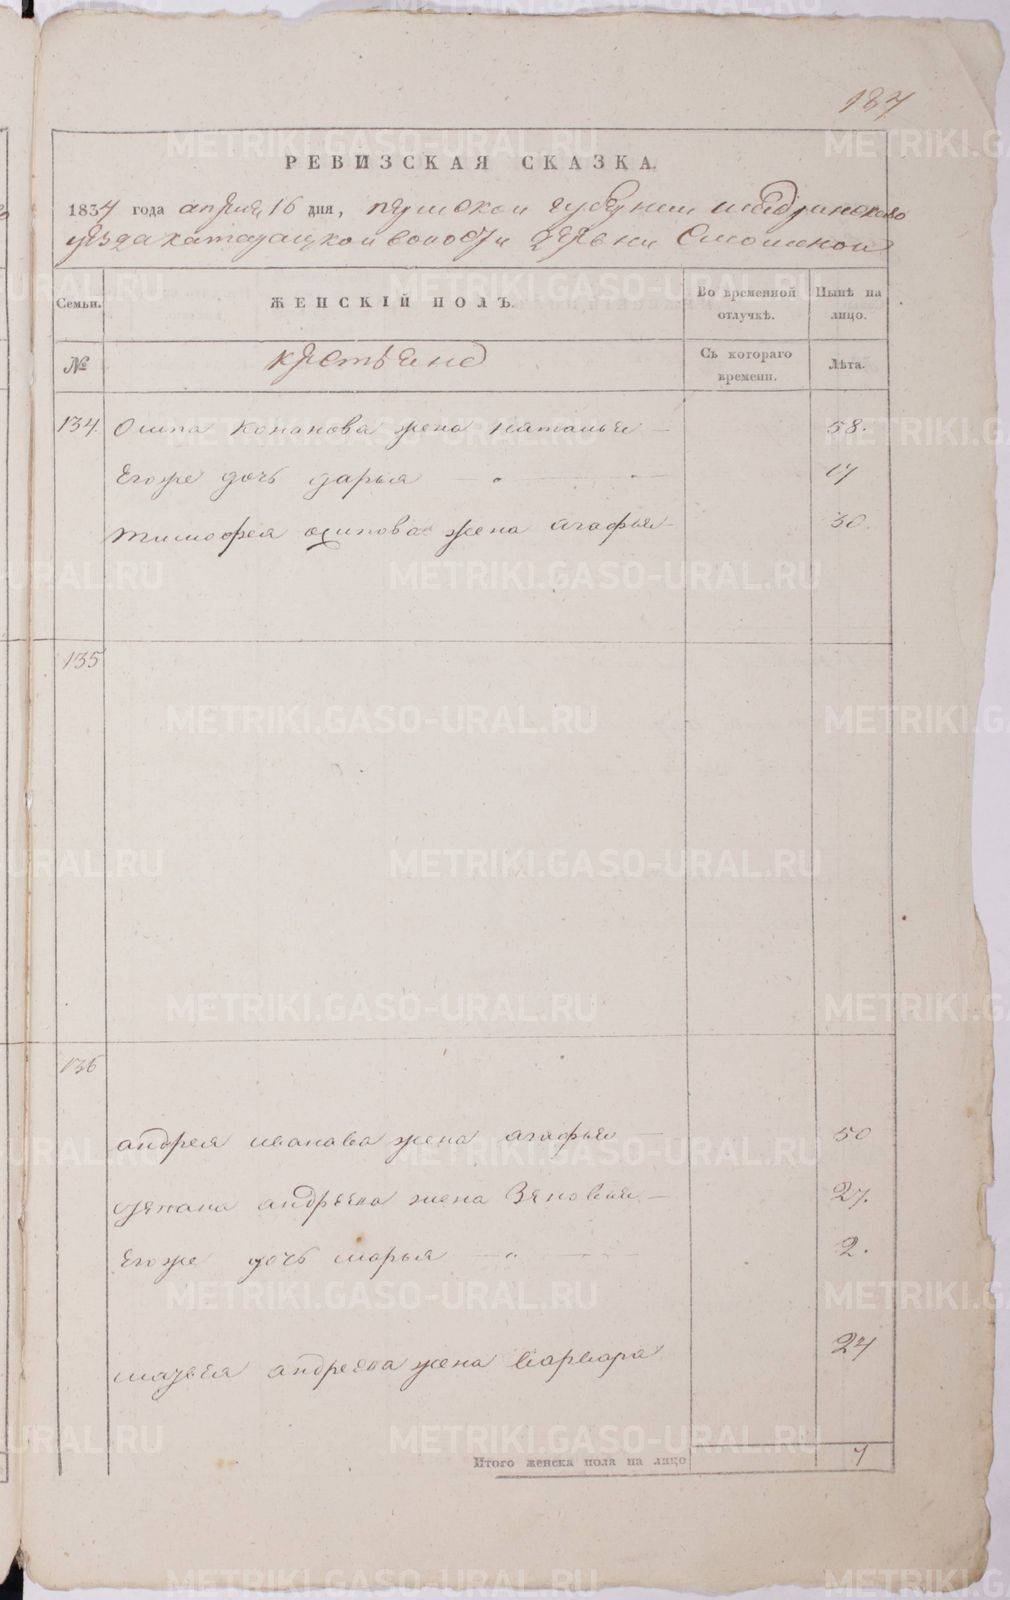 187
РЕВИЗСКАЯ СКАЗКА.
1834 года апреля 16 дня, пермской губернии шадринскаго
уезда катайцкой волости деревни Смолиной
Семьи. ЖЕНСКІЙ ПОЛЪ. Во временной отлучкѣ. Нынѣ на лицо.
№ крестьяне Съ котораго времени. Лѣта.
134. Осипа Кононова жена наталья 58.
Егоже дочь дарья 17
тимофея осипова жена агафья 30.
135
136
андрея иванова жена агафья 50
степана андреева жена Зеновья 27.
Егоже дочь марья 2.
матвея андреева жена варвара 24
Итого женска пола на лицо 7
METRIKI.GASO-URAL.RU